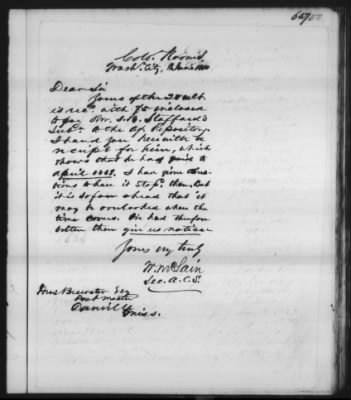 Colo. Rooms,
Wash. City,
Dear Sir
Yours of the 28 ult.
is recd. with $5 enclosed
to pay Rev. S. R. Stafford's
Subn. to the Af. Repository.
I hand you herewith the
receipt for him, which
shows that he has paid to
April 1853. I have given direc-
tions to have it stopd. then. But
it is so far ahead that it
may be overlooked when the
time comes. He had therefore
better then give us notice.
Yours very truly
W. McLain
Sec. A. C. S.
Brewster Esq
Post master
Danville
Miss.